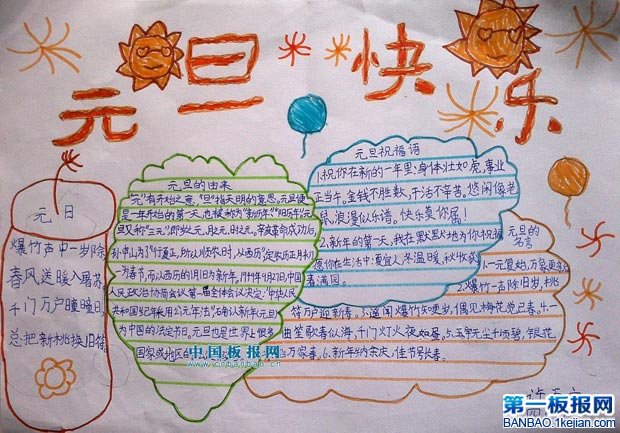 元旦快乐
元日
爆竹声中一岁除
春风送暖入屠苏
千门万户曈曈日
总把新桃换旧符
元旦的由来
"元"有开始之意，"旦"指天明的意思。元旦便
是一年开始的第一天，也被称为"新历年""阳历年"元
旦又称"三元"，即岁之元、月之元、时之元。辛亥革命成功后，
孙中山为了"行夏正，所以顺农时，从西历"定农历正月初
一为春节，而以西历的1月1日为新年。1949年9月27日，中国
人民政治协商会议第一届全体会议决定：中华人民
共和国纪年采用公元年法"
为中国的法定节日。元旦也是世界上很多
国家或地区的
元旦祝福语
1.祝你在新的一年里：身体壮如虎，事业
正当午。金钱不胜数，干活不辛苦。悠闲像老
鼠，浪漫似乐谱。快乐莫你属！
2.新年的第一天，我在默默地为你祝福
愿你在生活中：夏宜人，冬温暖，秋收获
春满园。
元旦的
名言
1.一元复始，万象更
2.爆竹一声除旧岁，桃
符万户迎新春。3.遥闻爆竹知更岁，偶见梅花觉已春。4.一
曲笙歌春似海，千门灯火夜如昼。5.玉宇无尘千顷碧，银花
万家春。6.新年纳余庆，佳节号长春。
中国板报网
www.cnbanbao.cn
第一板报网
BANBAO.1kejian.com